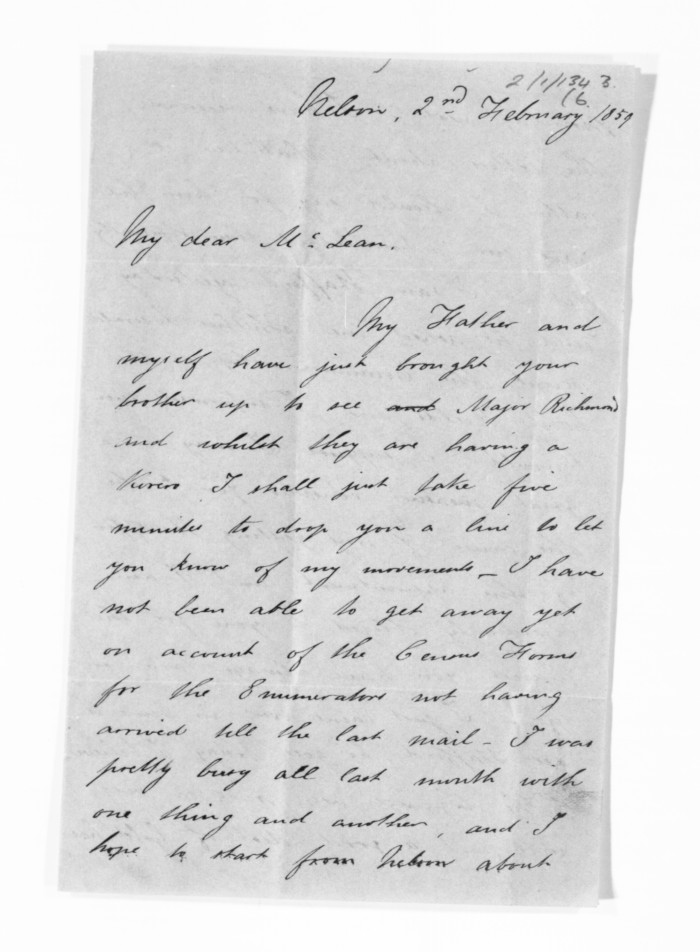 2/1/134 3.
16
Nelson, 2nd February 1859
My dear Mc Lean.
My Father and
myself have just brought your
brother up to see and Major Richmond
and whilst they are having a
Korero I shall just take five
minutes to drop you a line to let
you know of my movements _ I have
not been able to get away yet
on account of the Census Forms
for the Enumerators not having
arrived till the last mail _ I was
pretty busy all last month with
one thing and another, and I
hope to start from Nelson about